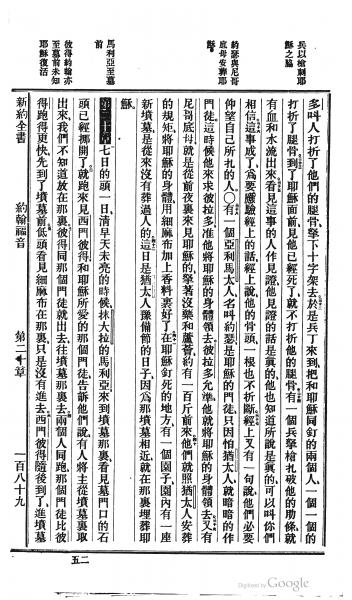 兵以槍刺耶
穌之脇
約瑟與尼哥
底母安葬耶
穌
馬利亞至墓
前
彼得約翰亦
至墓前未知
耶穌復活
多叫人打折了他們的腿骨拏下十字架去於是兵丁來到把和耶穌同釘的兩個人一個一個的
打折了腿骨到了耶穌面前見他已經死了就不打折他的腿骨有一個兵拏槍扎破他的肋條就
有血和水流出來看見這事的人作見證他見證的話是眞的他也知道所說是眞的可以叫你們
相信這事成了爲要應驗經上的話經上說他的骨頭一根也不折斷經上又有一句說他們必要
仰望自己所扎的人〇有一個亞利馬太人名叫約瑟是耶穌的門徒只因怕猶太人就暗暗的作
門徒這時候他來求彼拉多准他將耶穌的身體領去彼拉多允準他就將耶穌的身體領去又有
尼哥底母就是從前夜裏來見耶穌的拏著沒藥和蘆薈約有一百斤前來他們就照猶太人安葬
的規矩將耶穌的身體用細麻布加上香料裹好了在耶穌釘死的地方有一個園子園內有一座
新墳墓是從來沒有葬過人的這日是猶太人豫備節的日子因爲那墳墓相近就在那裏埋葬耶
穌
第二十章七日的頭一日清早天未亮的時候抹大拉的馬利亞來到墳墓那裏看見墓門口的石
頭已經挪開了就跑來見西門彼得和耶穌所愛的那個門徒告訴他們說有人將主從墳墓裏取
出來我們不知道放在那裏彼得同那個門徒就出去往墳墓那裏去兩個人同跑那個門徒比彼
得跑得更快先到了墳墓前低頭看見細麻布在那裏只是沒有進去西門彼得隨後到了進墳墓
新約全書 約翰福音 第二十章 一百八十九
五二
Digitized by Google